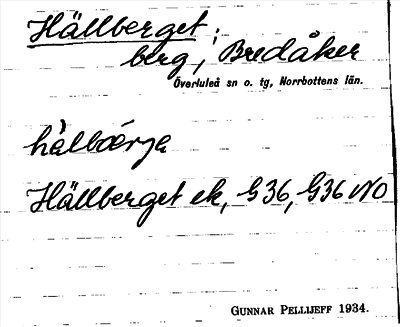 Hällberget;
berg, Bredåker
Överluleå sn o. tg, Norrbottens län.
hàlbǿrja
Hällberget ek, G36, G36 NO
GUNNAR PELLIJEFF 1934.